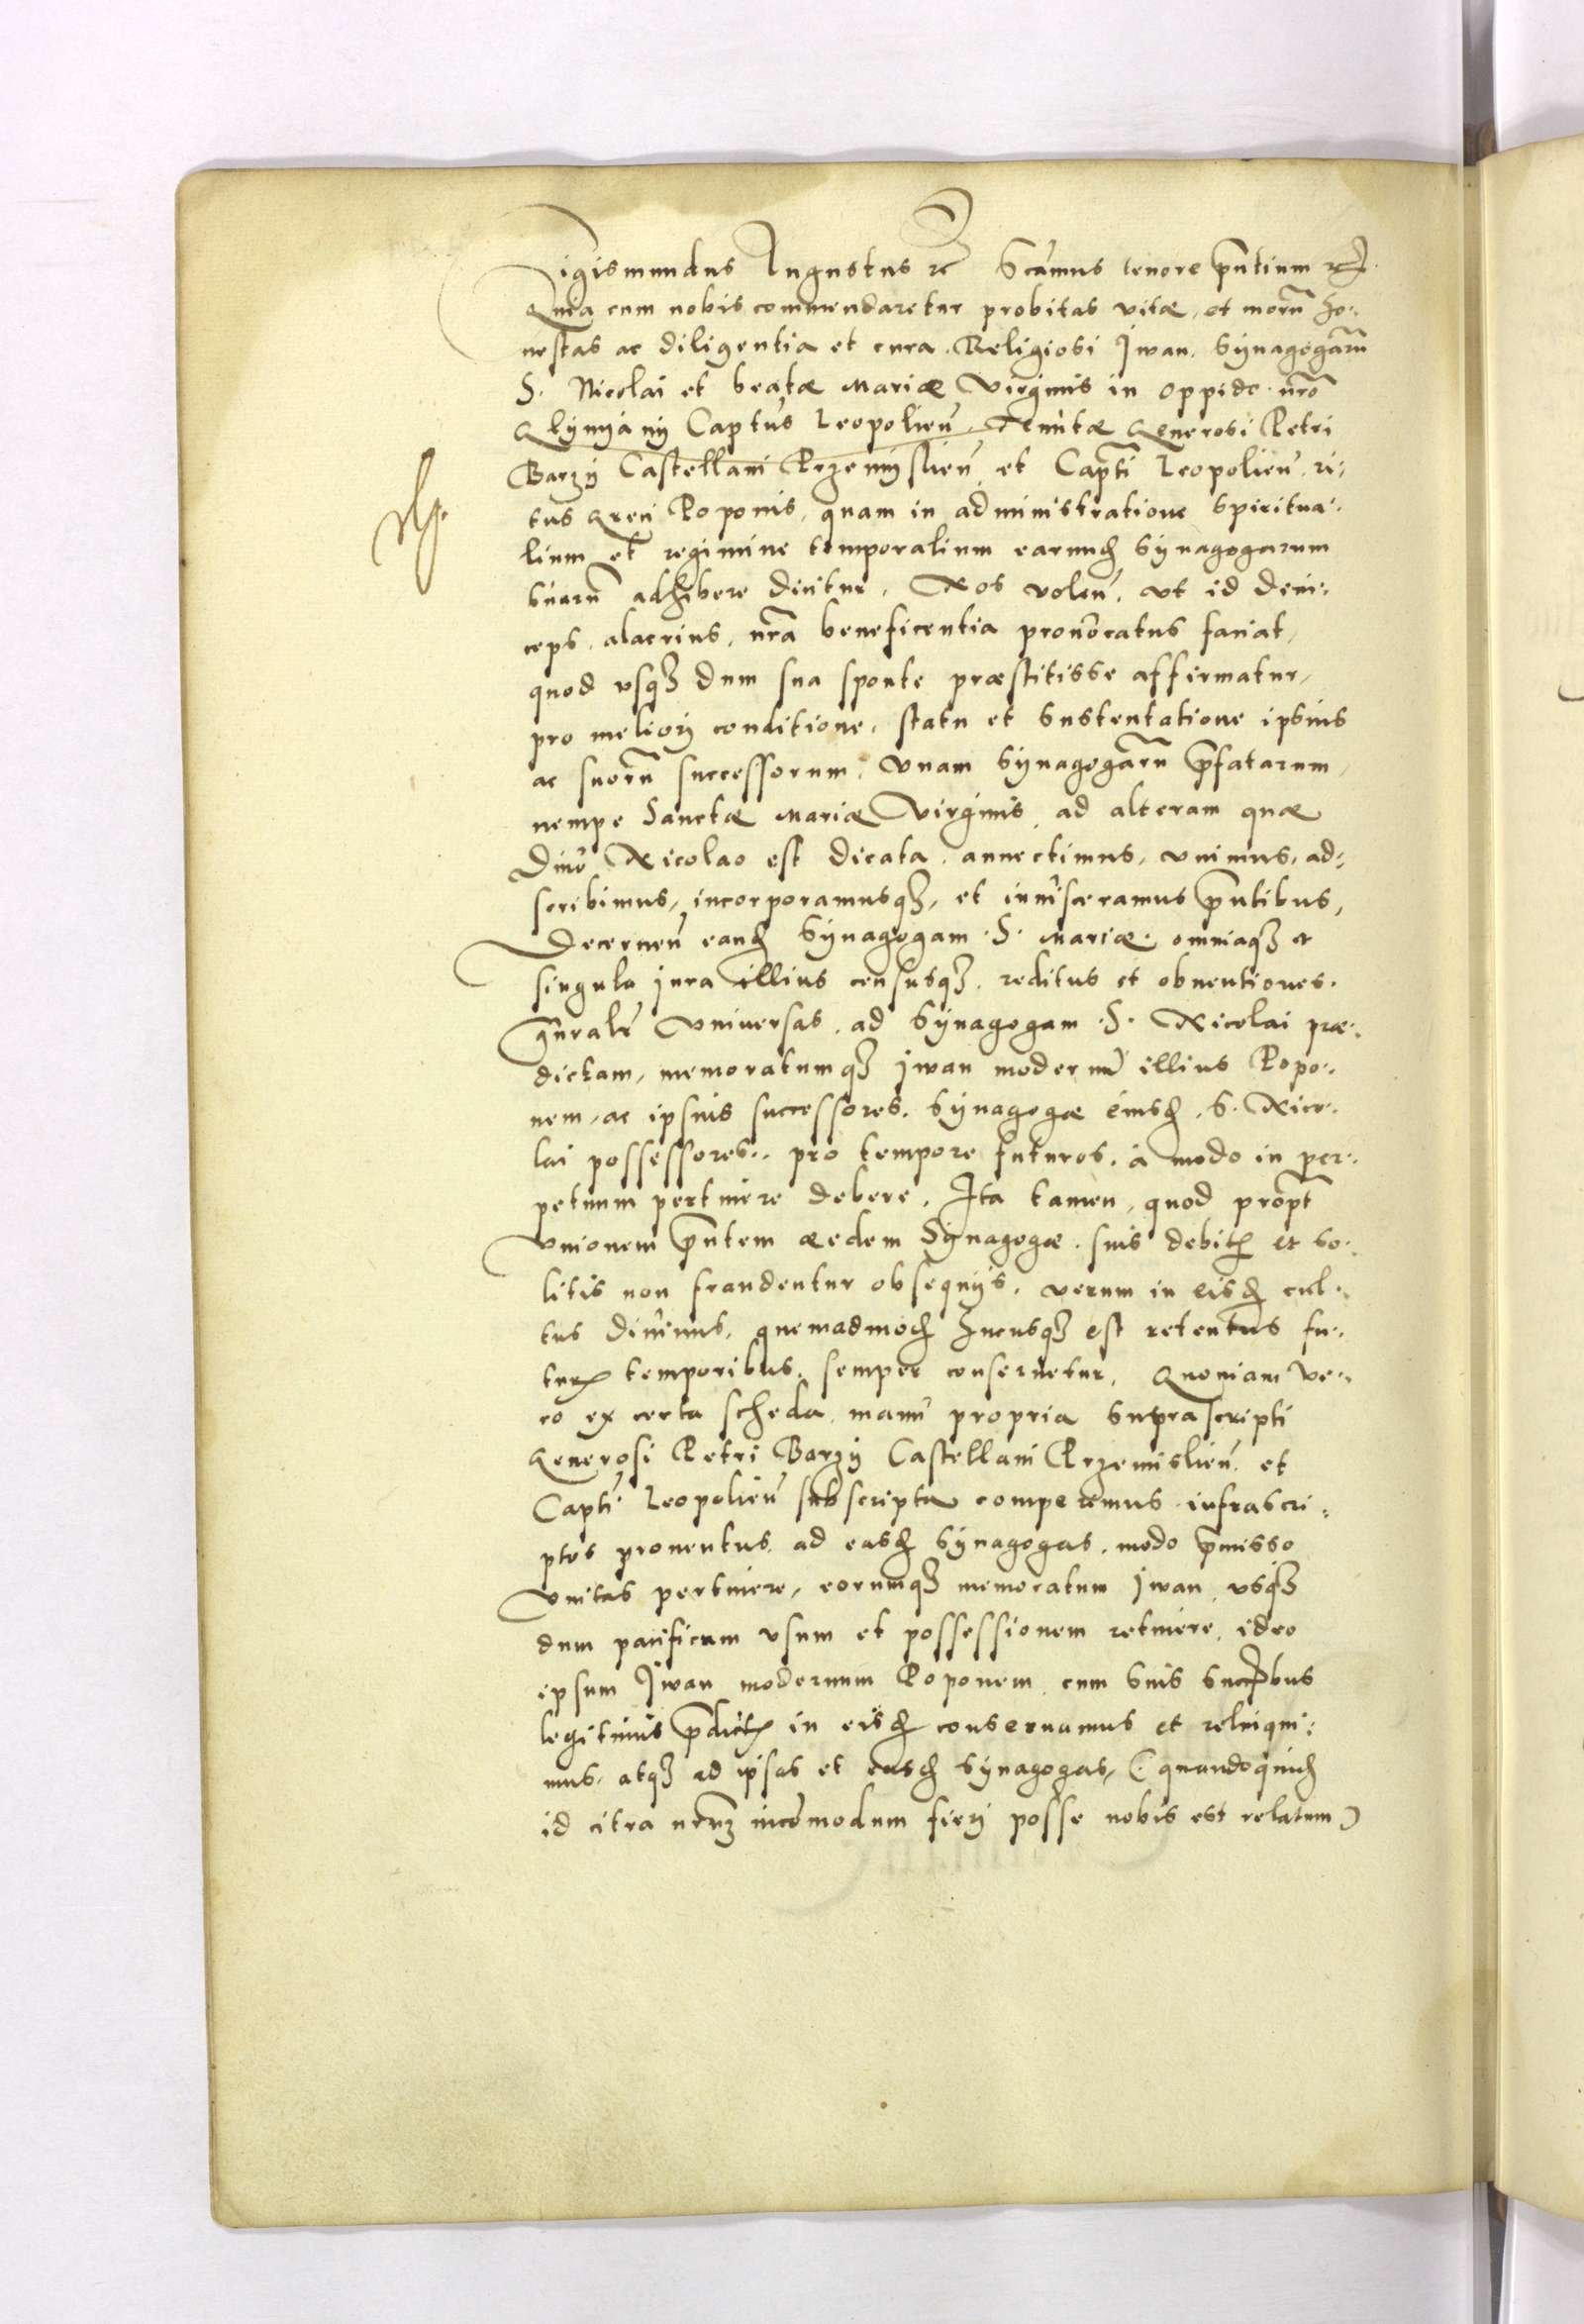 Sigismundus Augustus etc Sẽamus tenore p̃ntium etc.
Quia cum nobis commendaretur probitas vitæ, et morũ ho-
nestas ac diligentia et cura Religiosi Iwan, Synagogarũ
S. Nicolai et beatæ Mariæ Virginis in oppido nr̃o
Glynyány Captũs Leopolieñ, Tenutæ Generosi Petri
Barzy Castellani Przemyslieñ et Capt̃i Leopolieñ ri-
tus Greci Poponis, quam in administratione spiritua-
lium et regimine temporalium earund Synagogarum
suarũ adhibere dicitur, Nos voleñ, ut id dein-
ceps alacrius, nr̃a beneficentia prouocatus faciat,
quod usq dum sua sponte præstitisse affirmatur,
pro meliorj conditione, statu et sustentatione ipsius
ac suorũ successorum, Vnam Synagogarũ p̃fatarum,
nempe Sanctæ Mariæ Virginis, ad alteram quæ
Diuo Nicolao est dicata, annectimus, vnimus, ad-
scribimus, incorporamusq, et inuisceramus p̃ntibus,
Decerneñ eand Synagogam S. Mariæ omniaq et
singula jura illius censusq, reditus et obuentiones
gñralr̃ Vniuersas, ad Synagogam S. Nicolai præ-
dictam, memoratumq Iwan modernũ illius Popo-
nem, ac ipsius successores, Synagogæ eiusd S. Nico-
lai possessores, pro tempore futuros, à modo in per-
petuum pertinere debere, Ita tamen, quod propt̃
Vnionem p̃ntem ædem Synagogæ, suis debit et so-
litis non fraudentur obsequijs, verum in eisd cul-
tus diuinus, quemadmod hucusq est retentus fu-
tur temporibus semper conseruetur, Quoniam ve-
ro ex certa scheda manu propria suprascripti
Generosi Petri Barzy Castellani Przemislieñ et
Capt̃i Leopolieñ subscripta comperimus infrascri-
ptos prouentus ad easd Synagogas, modo p̃misso
Vnitas pertinere, eorumq memoratum Iwan, vsq
dum pacificum vsum et possessionem retinere, ideo
ipsum Iwan modernum Poponem, cum suis succ̃ribus
legitimis p̃dict in eisd conseruamus et relinqui-
mus, atq ad ipsas et easd Synagogas, (quandoquid
id citra incõmodum fierj posse nobis est relatum)